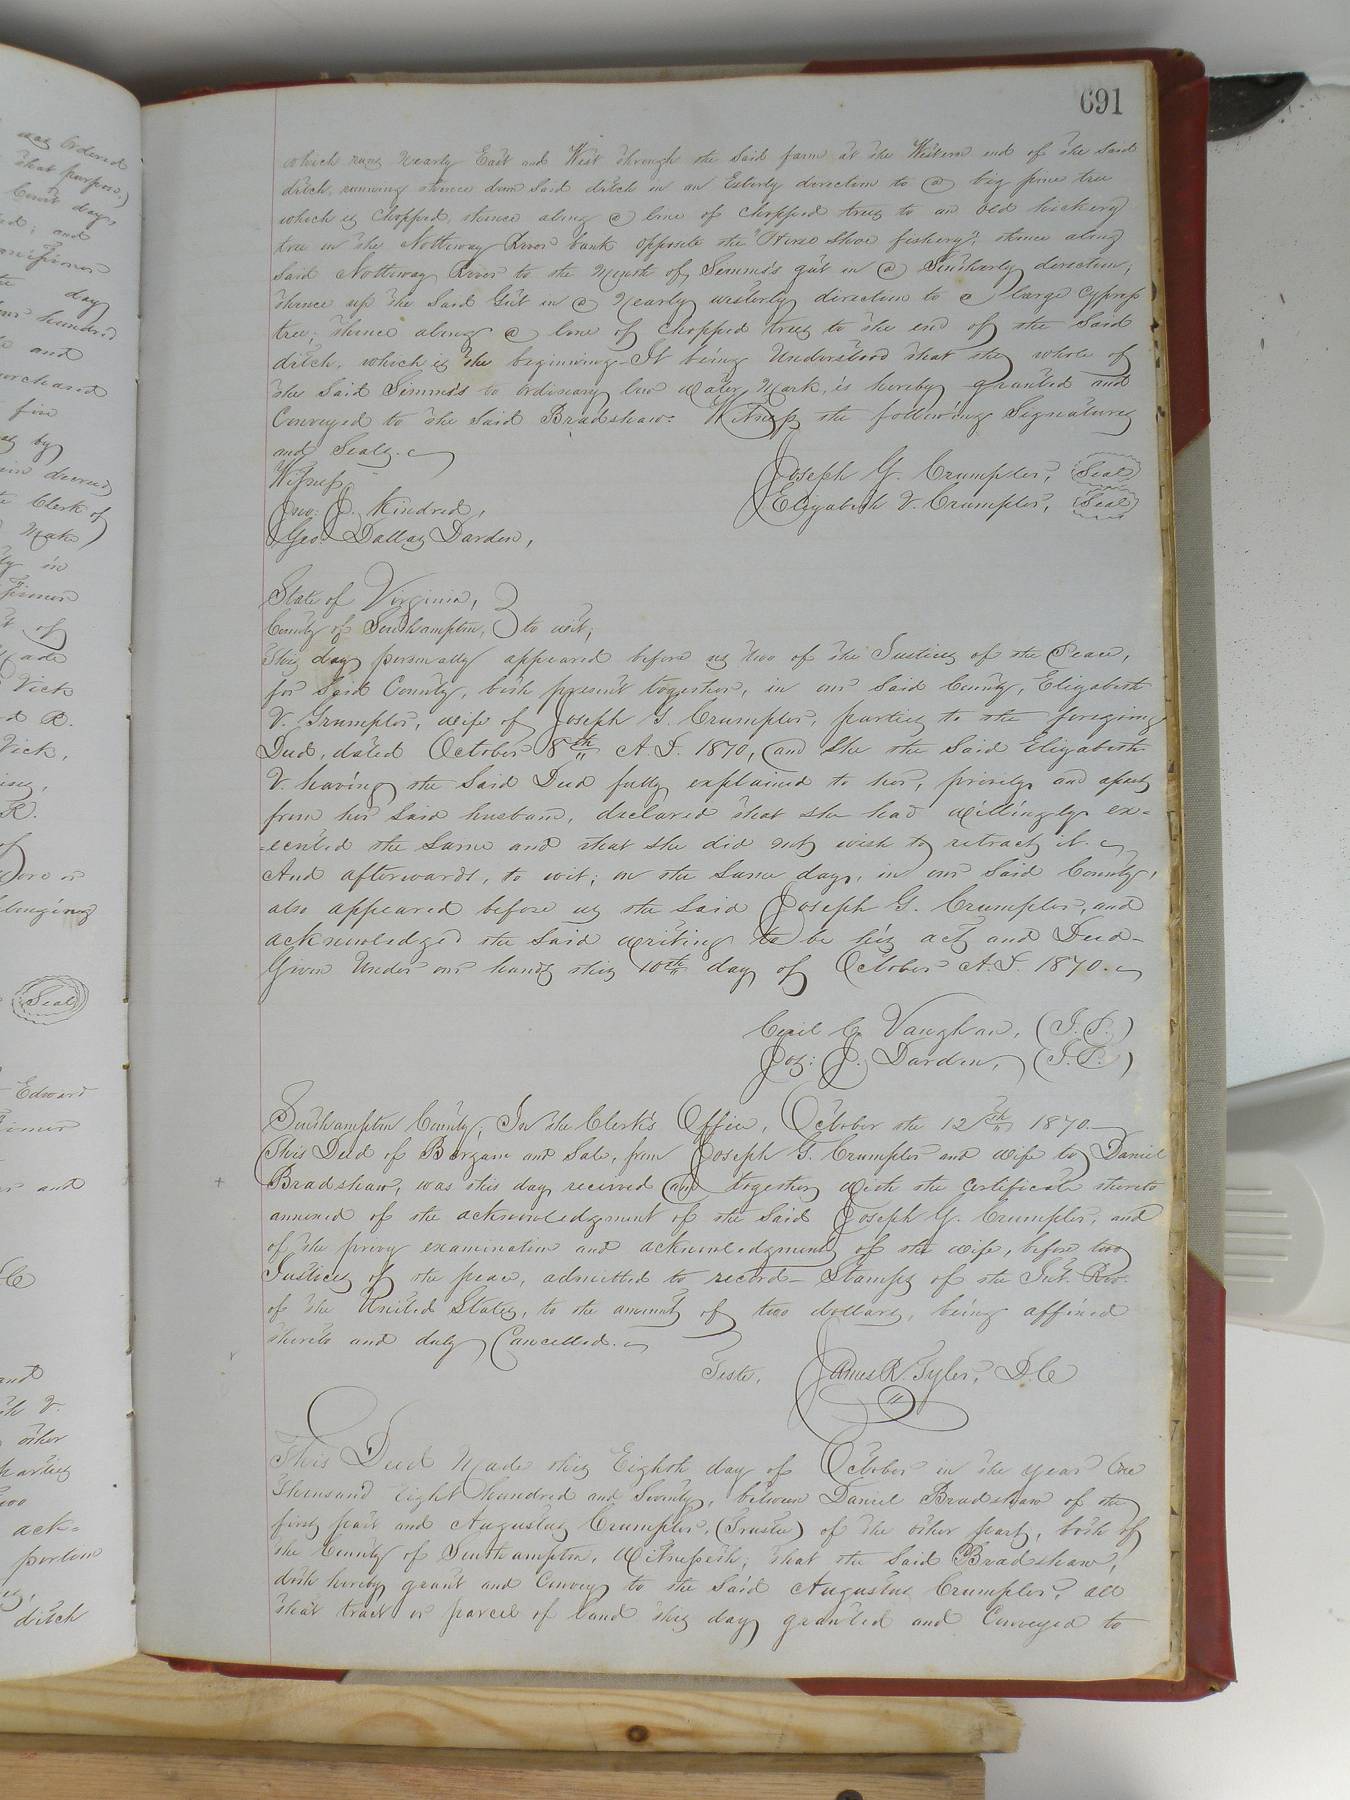 691
which runs nearly East and West through the said farm at the Western end of the said
ditch, running thence down said ditch in an Esterly direction to a big pine tree
which is chopped, thence along a line of chopped trees to an old hickory
tree in the Nottoway River bank opposite the "Horse Shoe fishery", thence along
said Nottoway River to the mouth of Simms's gut in a Southerly direction;
thence up the said Gut in a nearly westerly direction to a large cypress
tree; thence along a line of chopped trees to the end of the said
ditch, which is the beginning - It being understood that the whole of
the said Simms's to ordinary low water mark, is hereby granted and
Conveyed to the said Bradshaw. Witness the following Signatures
and Seals.
Witness,
Joseph G. Crumpler, (Seal)
Elizabeth V. Crumpler, (Seal)
Jno: J. Kindred,
Geo Dallas Darden,
State of Virginia,
County of Southampton, to wit;
This day personally appeared before us two of the Justices of the Peace,
for said County, both present together, in our said County, Elizabeth
V. Crumpler, wife of Joseph G. Crumpler, parties to the foregoing
Deed, dated October 8th A.D. 1870, and she the said Elizabeth
V. having the said Deed fully explained to her, privily and apart
from her said husband, declared that she had willingly ex=
=ecuted the same and that she did not wish to retract it.
And afterwards, to wit; on the same day, in our said County,
also appeared before us the said Joseph G. Crumpler, and
acknowledged the said writing to be his act and Deed -
Given under our hands this 10th day of October A.D. 1870.
Cecil C. Vaughan, (J.P.)
Jos: J. Darden, (J.P.)
Southampton County; In the Clerk's Office, October the 12th 1870.
This Deed of Bargain and Sale, from Joseph G. Crumpler and wife to Daniel
Bradshaw, was this day received and together with the certificate thereto
annexed of the acknowledgment of the said Joseph G. Crumpler, and
of the privy examination and acknowledgment of the wife, before two
Justices of the peace, admitted to record - Stamps of the Int. Rev.
of the United States, to the amount of two dollars, being affixed
thereto and duly Cancelled.
Teste, James R. Tyler, D.C
This Deed made this Eighth day of October in the year One
Thousand Eight Hundred and Seventy, between Daniel Bradshaw of the
first part and Augustus Crumpler, (Trustee) of the other part, both of
the County of Southampton, Witnesseth, that the said Bradshaw,
doth hereby grant and Convey to the said Augustus Crumpler, all
that tract or parcel of land this day granted and Conveyed to